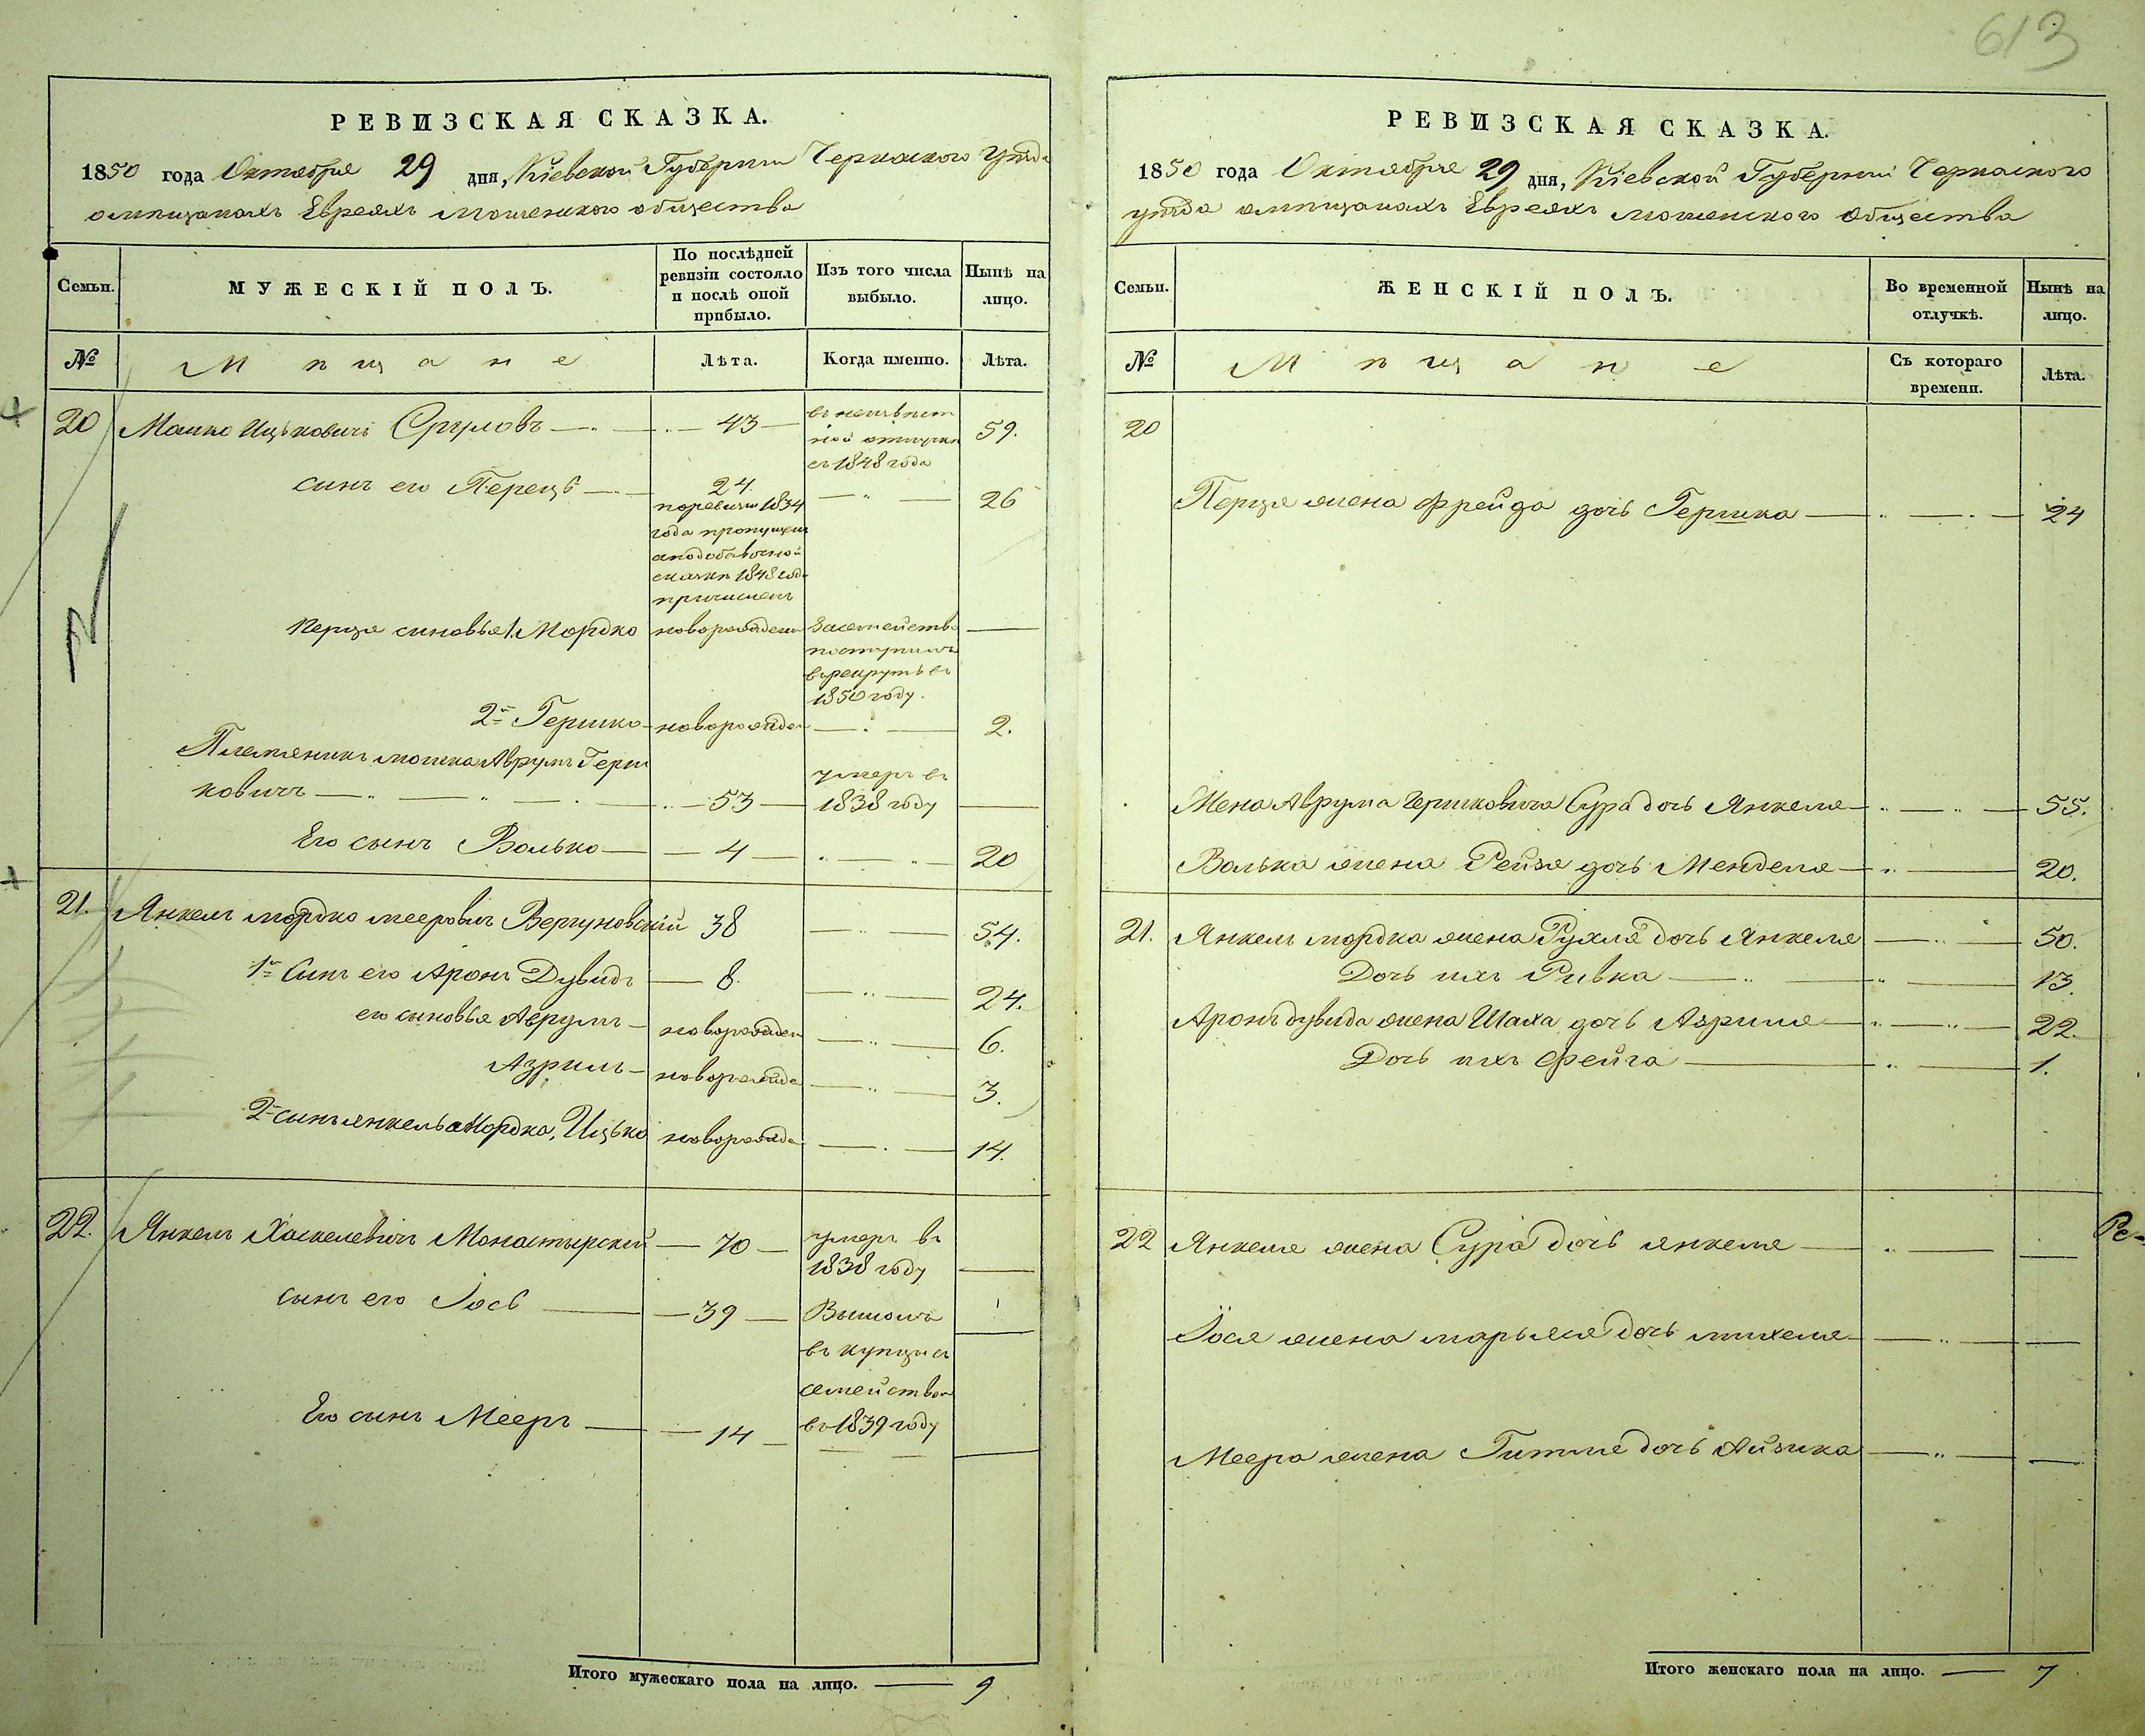 613
РЕВИЗСКАЯ СКАЗКА.
1850 года Октября 29 дня, Кіевской Губерніи Черкаского уѣзда
омѣщанахъ Евреяхъ мошенского общества
Семьи.
МУЖЕСКІЙ ПОЛЪ.
По послѣдней
ревизіи состояло
и послѣ оной
прибыло.
Изъ того числа
выбыло.
Нынѣ на
лицо.
№
Мѣщане
Лѣта.
Когда именно.
Лѣта.
20 Мошко Ицьковичъ Сруловъ 43 въ неизвѣст 59.
ной отлучкѣ
съ 1848 года
сынъ его Перецъ 24 26
поревизіи 1834
года пропущен
аподобавочной
сказкѣ 1848 года
причисленъ
Перца сыновья 1. Мордко новорожден засемейство
поступилъ
врекруты въ
1850 году.
2й Гершко новорожден 2.
Племяникъ мошка Аврумъ Герш
ковичъ 53 умеръ въ
1838 году
Его сынъ Волько 4 20
21. Янкель мордко мееровичъ Вергуновскій 38 54.
1й Сынъ его Аронъ Дувидъ 8. 24.
его сыновья Аврумъ новорожден 6.
Азриль новорожде 3.
2й сынъ янкель Мордка, Ицько новорожде 14.
22. Янкель Хаскелевичъ Монастырскій 70 умеръ въ
1838 году
сынъ его Іось 39 Вышолъ
въ купцы съ
семейством
Его сынъ Мееръ 14 въ 1839 году
Итого мужескаго пола на лицо. 9
РЕВИЗСКАЯ СКАЗКА.
1850 года Октября 29 дня, Кіевской Губерніи Черкаского
уѣзда омѣщанахъ Евреяхъ мошенского общества
Семьи.
ЖЕНСКІЙ ПОЛЪ.
Во временной
отлучкѣ.
Нынѣ на
лицо.
№
Мѣщане
Съ котораго
времени.
Лѣта.
20
Перца жена Фрейда дочь Гершка 24
Жена Аврума Гершковича Сура дочь Янкеля 55.
Волька жена Рейзя дочь Менделя 20.
21. Янкель мордка жена Рухля дочь Янкеля 50.
Дочь ихъ Ривка 13.
Аронъ дувида жена Шаха дочь Азриля 22.
Дочь ихъ Фейга 1.
22 Янкеля жена Сура дочь янкеля
Ре-
Іося жена марьяся дочь михеля
Меера жена Гитля дочь Айзика
Итого женскаго пола на лицо. 7